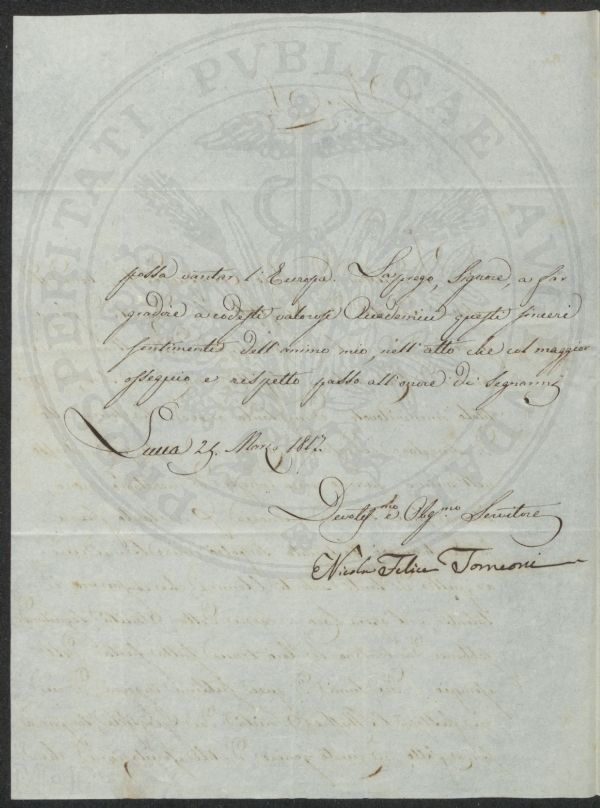 PROSPERITATI PVBLICAE AVGENDAE
possa vantar l'Europa. La prego, Signore, a far
gradire a codesti valorosi Accademici questi sinceri
sentimenti dell'animo mio, nell'atto che col maggior
ossequio, e rispetto passo all'onore di segnarmi
Lucca 25. Marzo 1817.
e Obgmo Servitore
Nicola Felice Tomeoni